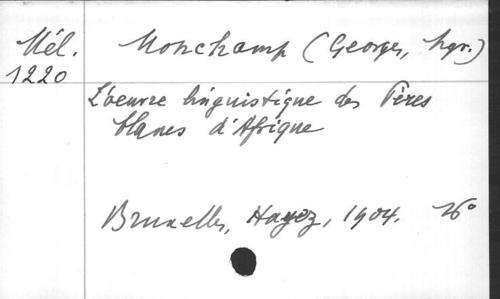 Mél. Monchamp (Georges, Mgr.)
1220
L'oeuvre linguistique des Pères
blancs d'Afrique
Bruxelles, Hayez, 1904. 16°